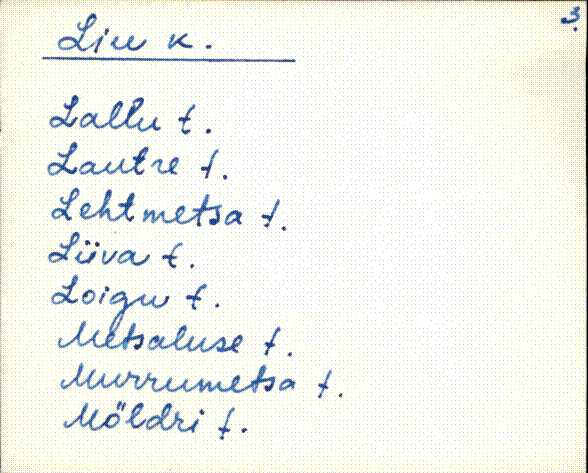 3.
Liu k.
Lallu t.
Lautre t.
Lehtmetsa t.
Liiva t.
Loigu t.
Metsaluse t.
Murrumetsa t.
Möldri t.